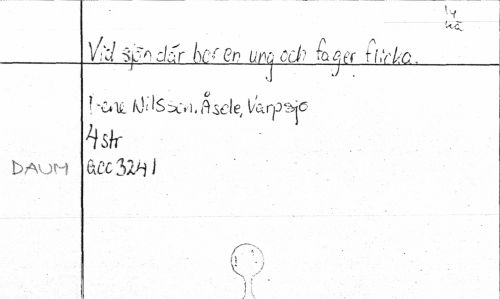 ly
kä
Vid sjön där bor en ung och fager flicka.
Irene Nilsson, Åsele, Varpsjö
4 str
DAUM Gcc 3241